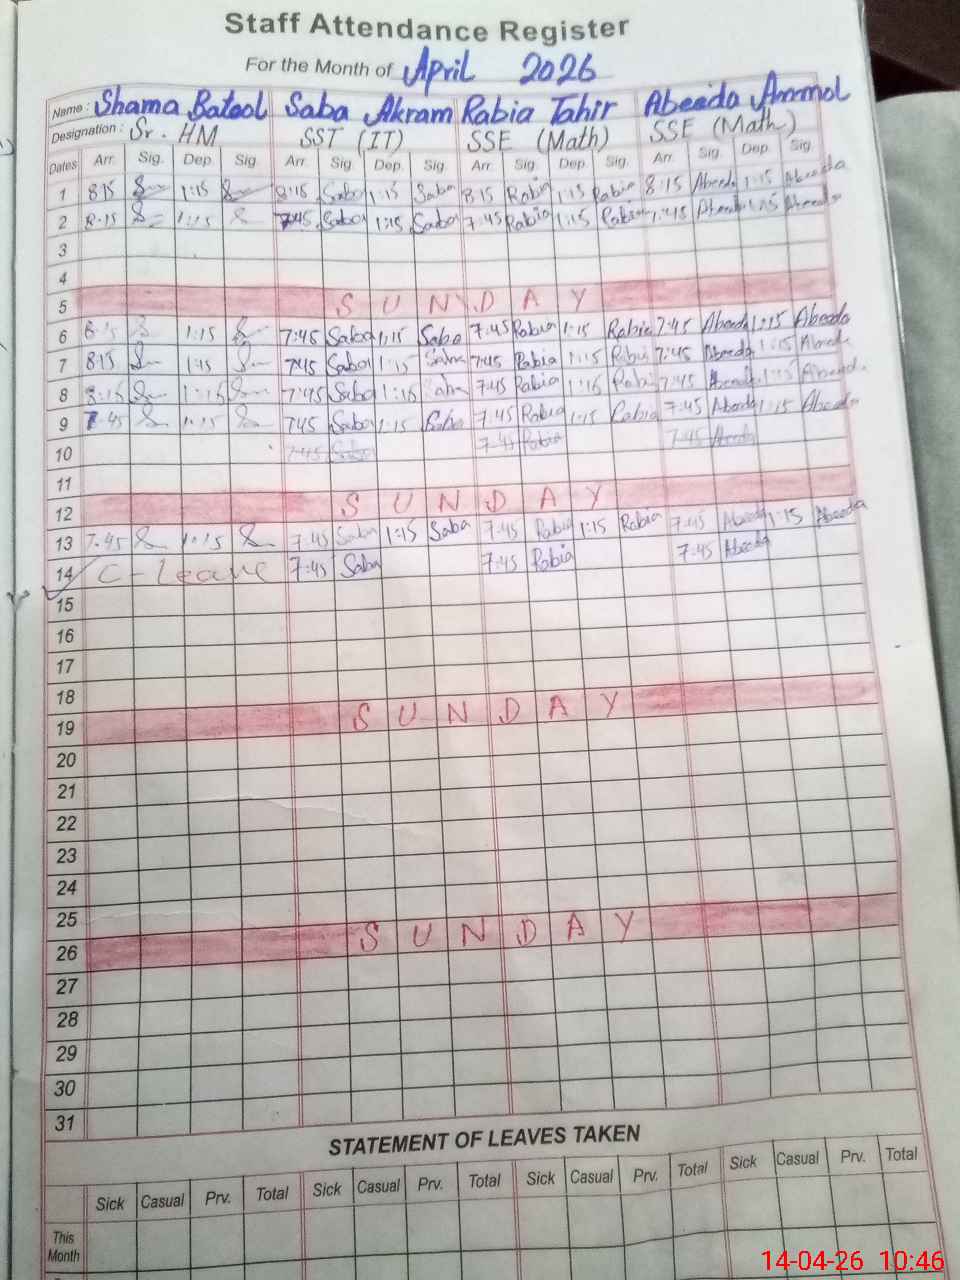 Staff Attendance Register
For the Month of April 2026
Name: Shama Batool Saba Akram Rabia Tahir Abeeda Anmol
Designation: Sr. HM SST (IT) SSE (Math) SSE (Math)
Dates Arr. Sig. Dep. Sig. Arr. Sig. Dep. Sig. Arr. Sig. Dep. Sig. Arr. Sig. Dep. Sig.
1 8:15 1:15 8:15 Saba 1:15 Saba 8:15 Rabia 1:15 Rabia 8:15 Abeeda 1:15 Abeeda
2 8:15 1:15 7:45 Saba 1:15 Saba 7:45 Rabia 1:15 Rabia 7:45 Abeeda 1:15 Abeeda
3
4
5 SUNDAY
6 8:15 1:15 7:45 Saba 1:15 Saba 7:45 Rabia 1:15 Rabia 7:45 Abeeda 1:15 Abeeda
7 815 1:45 7:45 Saba 1:15 Saba 7:45 Rabia 1:15 Rabia 7:45 Abeeda 1:15 Abeeda
8 8:15 1:15 7:45 Saba 1:15 Saba 7:45 Rabia 1:15 Rabia 7:45 Abeeda 1:15 Abeeda
9 7:45 1:15 7:45 Saba 1:15 Saba 7:45 Rabia 1:15 Rabia 7:45 Abeeda 1:15 Abeeda
10 7:45 Saba 7:45 Rabia 7:45 Abeeda
11
12 SUNDAY
13 7:45 1:15 7:45 Saba 1:15 Saba 7:45 Rabia 1:15 Rabia 7:45 Abeeda 1:15 Abeeda
14 C-Leave 7:45 Saba 7:45 Rabia 7:45 Abeeda
15
16
17
18
19 SUNDAY
20
21
22
23
24
25
26 SUNDAY
27
28
29
30
31
STATEMENT OF LEAVES TAKEN
Sick Casual Prv. Total Sick Casual Prv. Total Sick Casual Prv. Total Sick Casual Prv. Total
This
Month
14-04-26 10:46